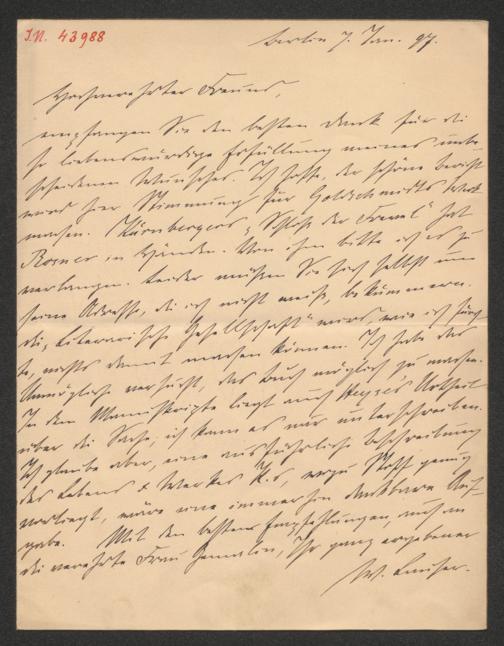 I.N. 43988
Berlin 7. Jan. 97.
Hochverehrter Freund,
empfangen Sie den besten Dank für die
so liebenswürdige Erfüllung meines unbe-
scheidenen Wunsches. Ich hoffe, der schöne Bericht
wird hier Stimmung für Goldschmidts Werk
machen. Kürnbergers „Schloß der Frevel" hat
Rosner in Händen. Von ihm bitte ich es zu
verlangen. Leider müssen Sie sich selbst um
seine Adresse, die ich nicht weiß, bekümmern.
die „Literarische Gesellschaft" wird, wie ich fürch-
te, nichts damit machen können. Ich habe das
Unmögliche versucht, das Buch möglich zu machen.
In dem Manuskripte liegt auch Heyse's Urtheil
über die Sache; ich kann es nur unterschreiben.
Ich glaube aber, eine ausführliche Beschreibung
des Lebens & Werkes K.s, wozu Stoff genug
vorliegt, wäre eine immerhin dankbare Auf-
gabe. Mit den besten Empfehlungen, auch an
die verehrte Frau Gemalin, Ihr ganz ergebener
W.